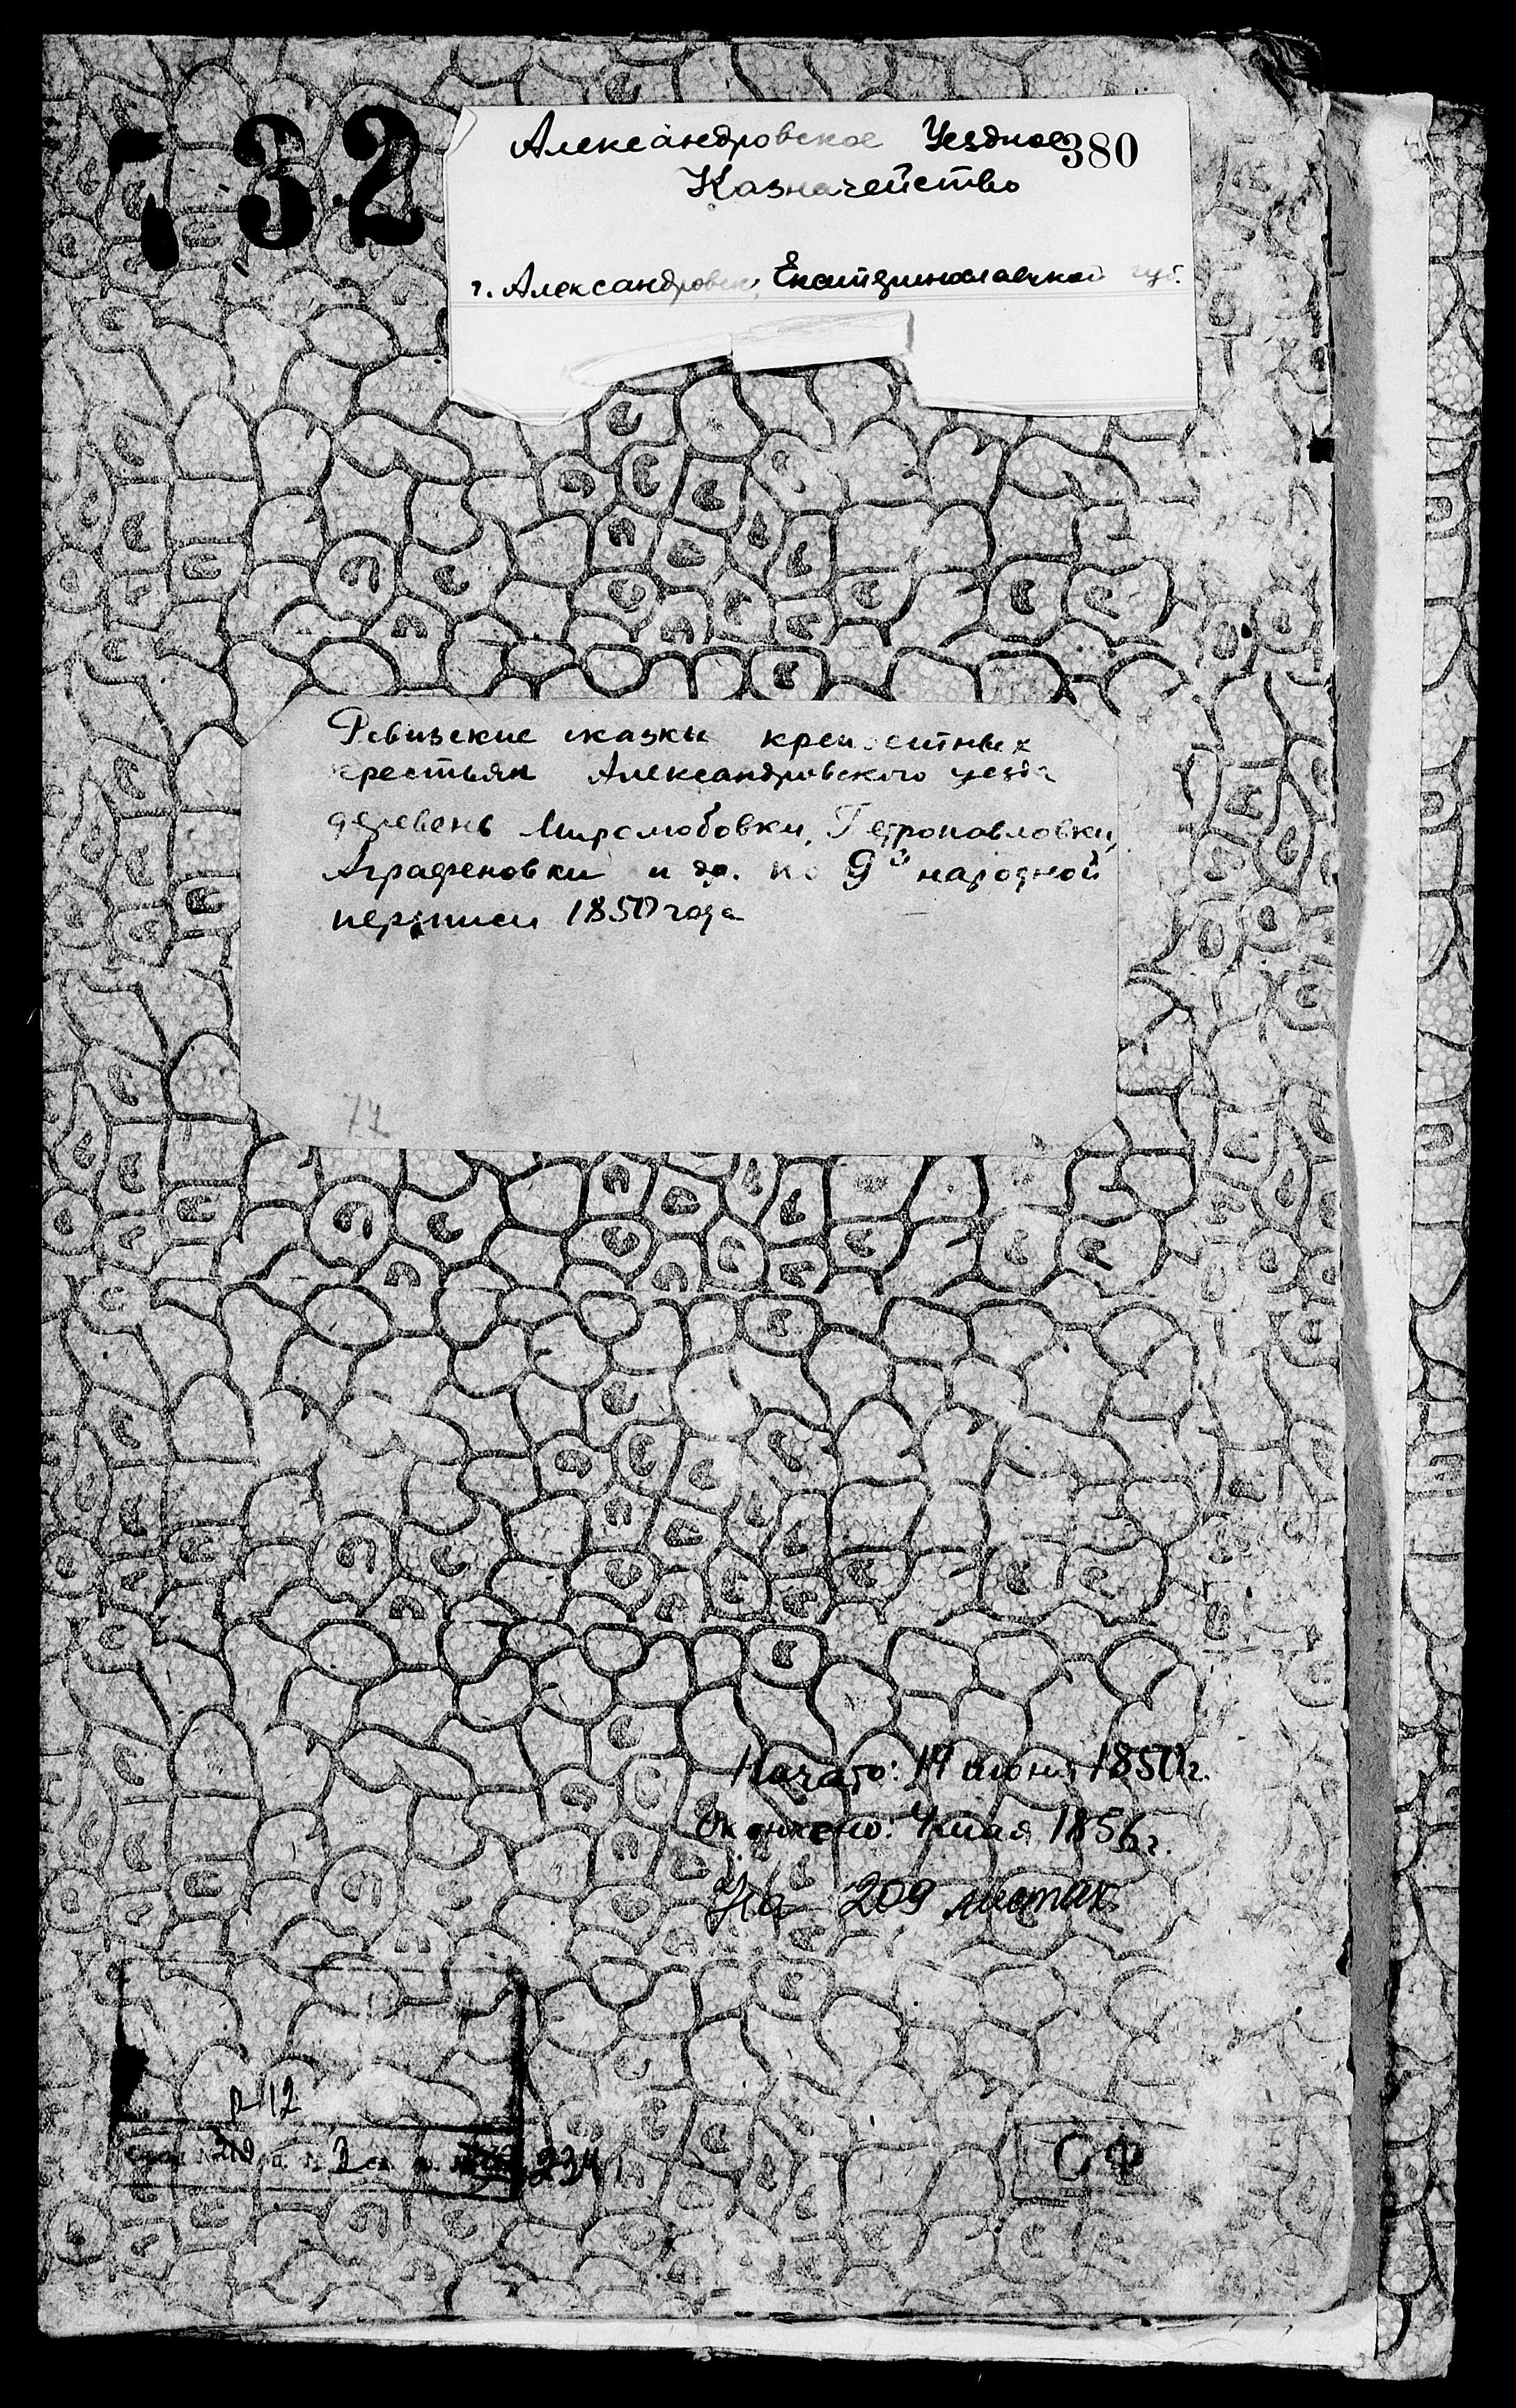 732
380
Александровское Уездное
Казначейство
г. Александровск, Екатеринославской губ.
Ревизские сказки крепостных
крестьян Александровского уезда
деревень Миролюбовки, Петропавловки,
Аграфеновки и др. по 9й народной
переписи 1850 года
72
Начато: 14 июня 1850 г.
Окончено: 4 мая 1856 г.
На 209 листах
р-12
234
СФ